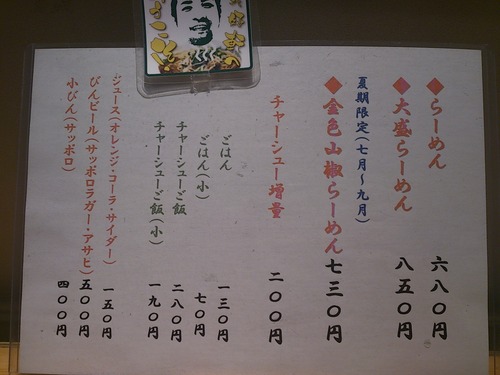 ◆らーめん 六八〇円
◆大盛らーめん 八五〇円
夏期限定(七月～九月)
◆金色山椒らーめん 七三〇円
チャーシュー増量 二〇〇円
ごはん 一三〇円
ごはん(小) 七〇円
チャーシューご飯 二八〇円
チャーシューご飯(小) 一九〇円
ジュース(オレンジ・コーラ・サイダー) 一五〇円
びんビール(サッポロラガー・アサヒ) 五〇〇円
小びん(サッポロ) 四〇〇円